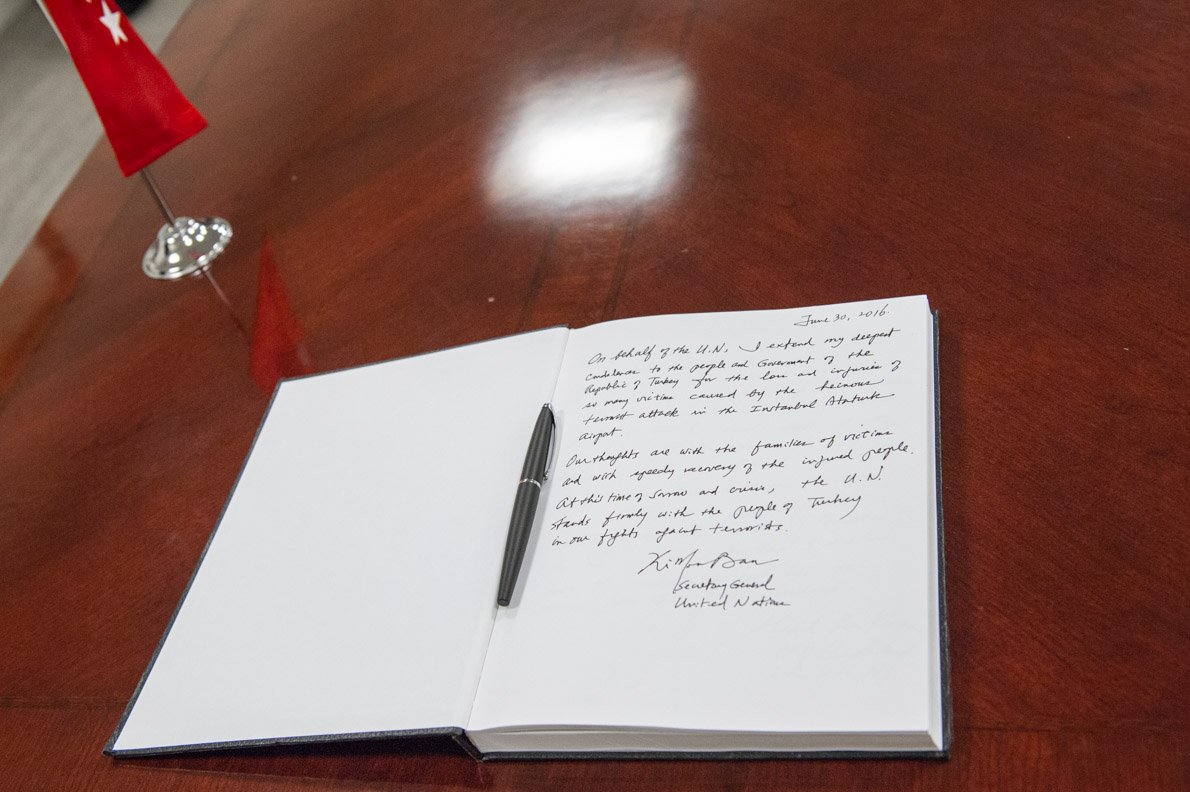 June 30, 2016.
On behalf of the U.N., I extend my deepest
condolences to the people and Government of the
Republic of Turkey for the loss and injuries of
so many victims caused by the heinous
terrorist attack in the Instanbul Ataturk
Airport.
Our thoughts are with the families of victims
and with speedy recovery of the injured people.
At this time of sorrow and crisis, the U.N.
stands firmly with the people of Turkey
in our fights against terrorists.
Ki Moon Ban
Secretary General
United Nations